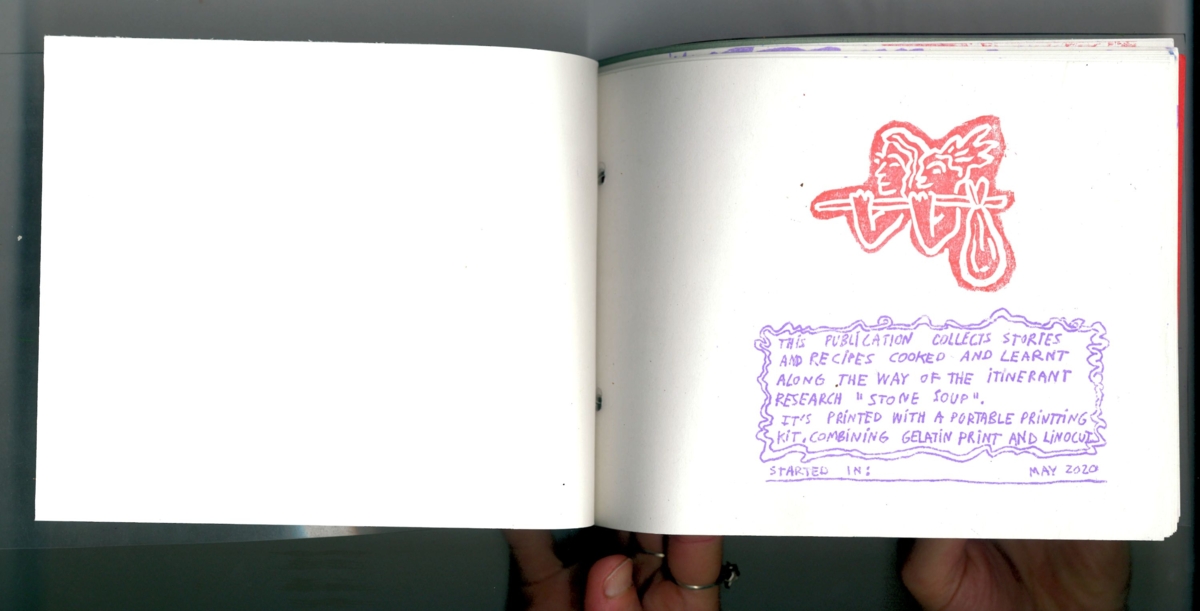 THIS PUBLICATION COLLECTS STORIES
AND RECIPES COOKED AND LEARNT
ALONG THE WAY OF THE ITINERANT
RESEARCH "STONE SOUP".
IT'S PRINTED WITH A PORTABLE PRINTTING
KIT, COMBINING GELATIN PRINT AND LINOCUT
STARTED IN: MAY 2020